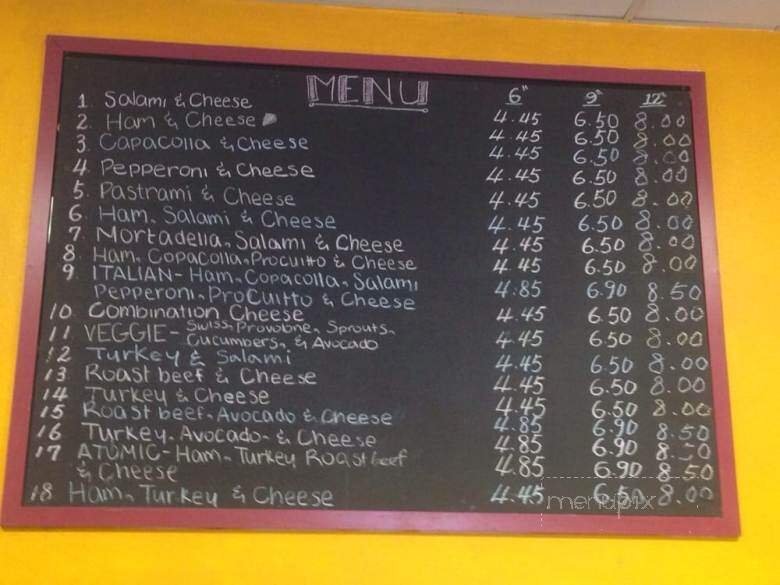 MENU 6" 9" 12"
1 Salami & Cheese 4.45 6.50 8.00
2 Ham & Cheese 4.45 6.50 8.00
3 Capacolla & Cheese 4.45 6.50 8.00
4 Pepperoni & Cheese 4.45 6.50 8.00
5 Pastrami & Cheese 4.45 6.50 8.00
6 Ham, Salami & Cheese 4.45 6.50 8.00
7 Mortadella, Salami & Cheese 4.45 6.50 8.00
8 Ham, Copacolla, Procuitto & Cheese 4.45 6.50 8.00
9 ITALIAN - Ham, Copacolla, Salami
Pepperoni, Procuitto & Cheese 4.85 6.90 8.50
10 Combination Cheese 4.45 6.50 8.00
11 VEGGIE - Swiss, Provolone, Sprouts,
Cucumbers, & Avocado 4.45 6.50 8.00
12 Turkey & Salami 4.45 6.50 8.00
13 Roast beef & Cheese 4.45 6.50 8.00
14 Turkey & Cheese 4.45 6.50 8.00
15 Roast beef, Avocado & Cheese 4.85 6.90 8.50
16 Turkey, Avocado, & Cheese 4.85 6.90 8.50
17 ATOMIC - Ham, Turkey Roast beef
& Cheese 4.85 6.90 8.50
18 Ham, Turkey & Cheese 4.45 6.50 8.00
menupix